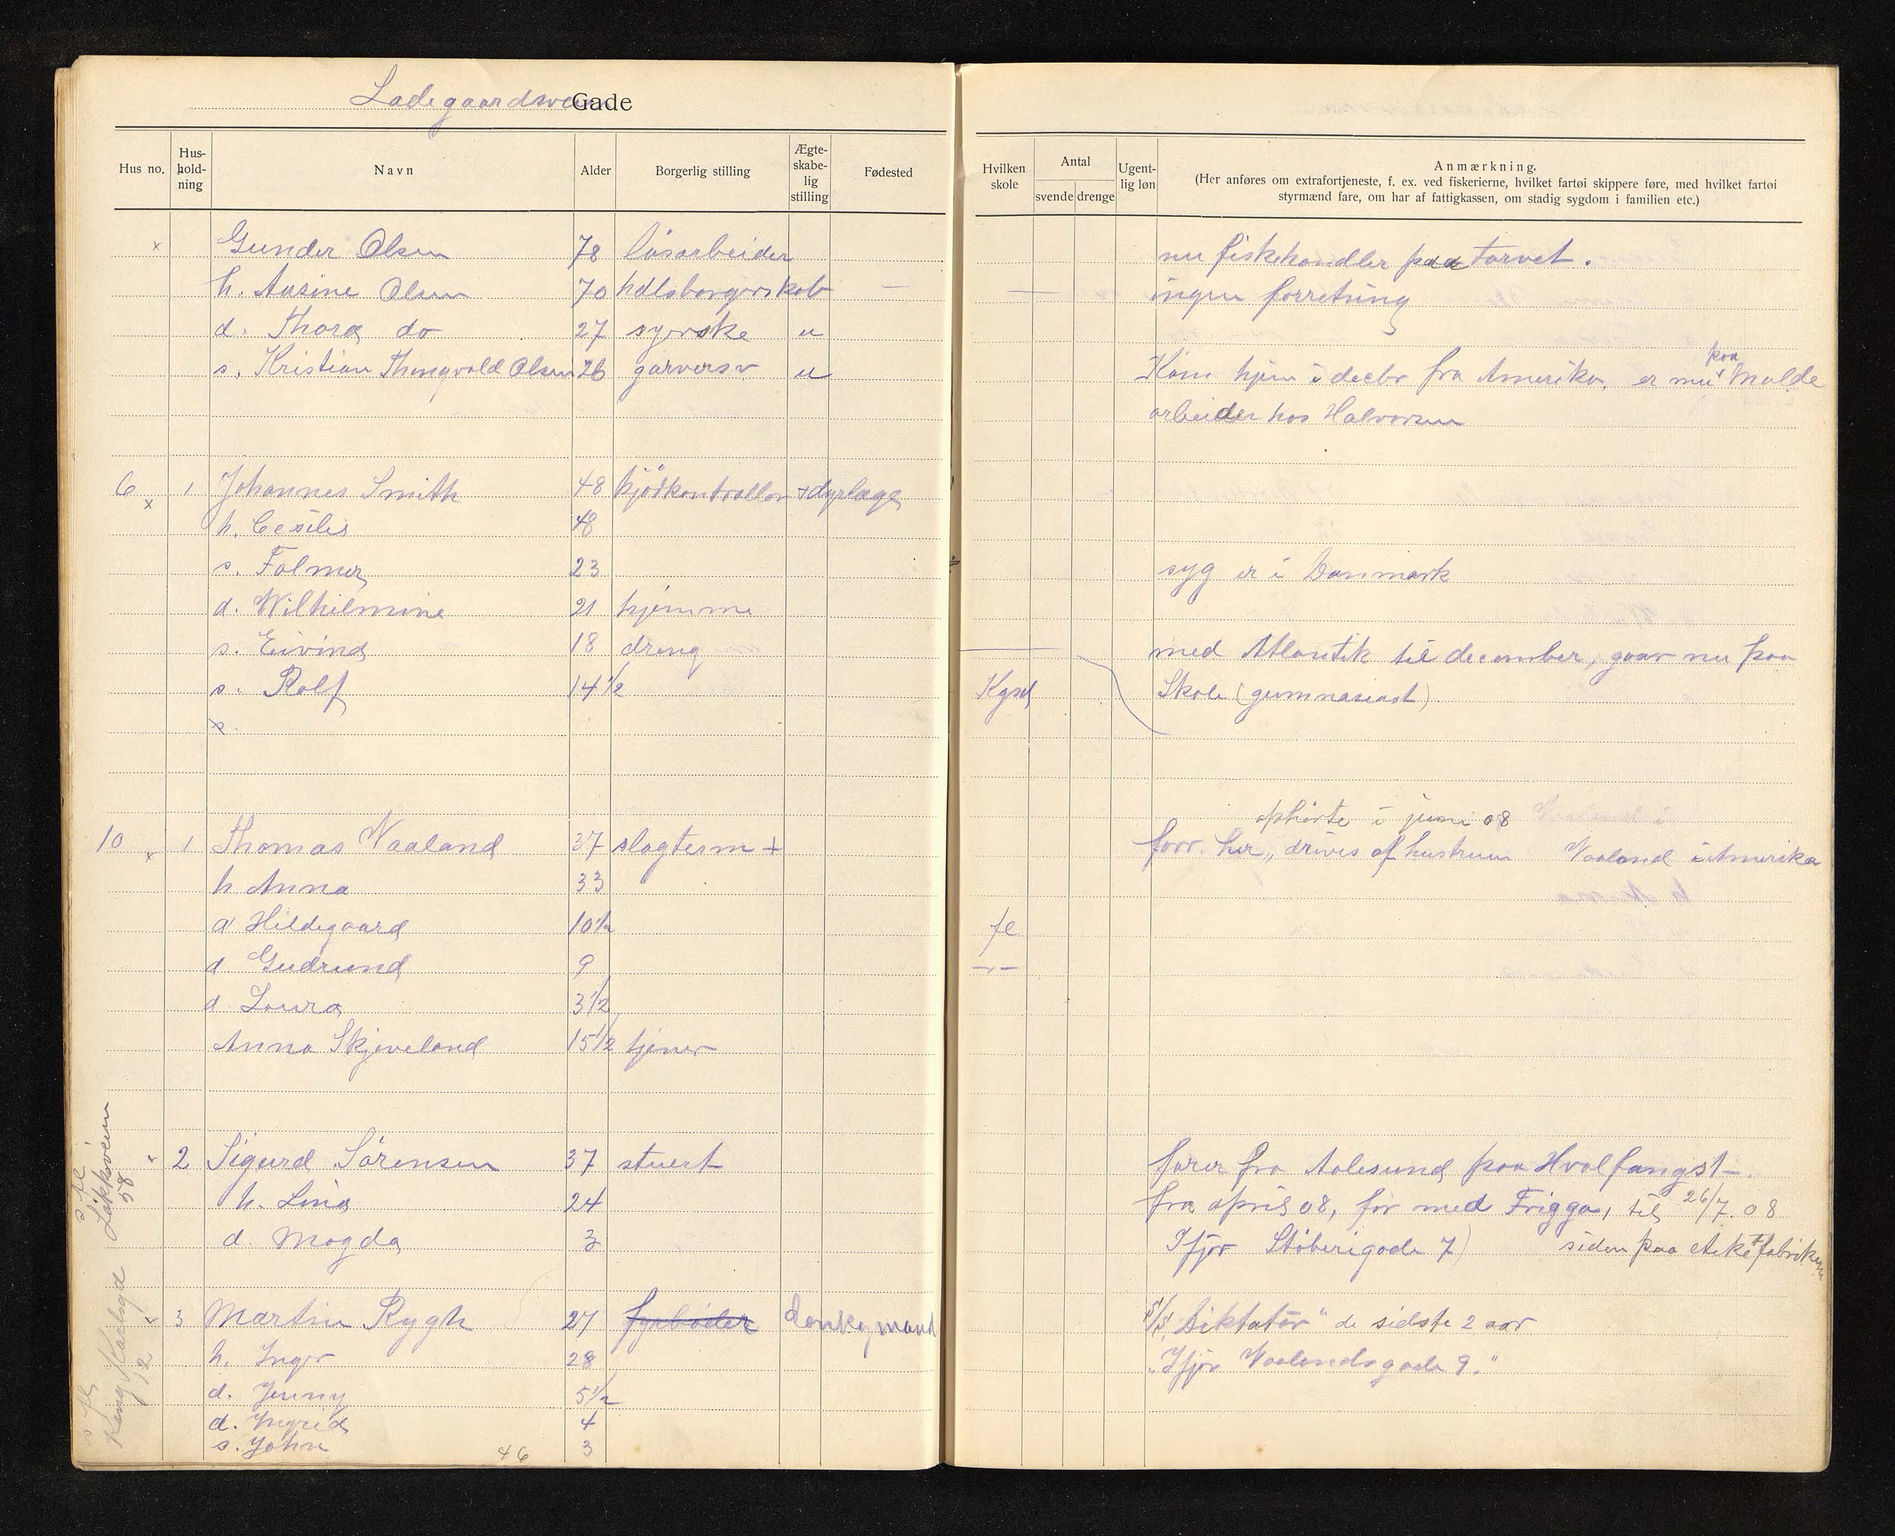 Ladegaardsveien Gade
Hus no. Hus-hold-ning Navn Alder Borgerlig stilling Ægte-skabe-lig stilling Fødested
Hvilken skole Antal svende drenge Ugent-lig løn Anmærkning.
(Her anføres om extrafortjeneste, f. ex. ved fiskerierne, hvilket fartøi skippere føre, med hvilket fartøi
styrmænd fare, om har af fattigkassen, om stadig sygdom i familien etc.)
x Gunder Olsen 78 løsarbeider nu fiskehandler paa torvet.
h. Aasine Olsen 70 hdlsborgerskab — — ingen forretning
d. Thora do 27 syerske u
s. Kristian Thongvald Olsen 26 garversv u Kom hjem i decbr fra Amerika, er nu paa Malde
arbeider hos Halvorsen
6 x 1 Johannes Smith 48 kjødkontrollør + dyrlæge
h. Cecilie 48
s. Folmer 23 syg er i Danmark
d. Wilhilmine 21 hjemme
s. Eivind 18 dreng med Atlantik til december, gaar nu paa
s. Rolf 14 1/2 Kgsd Skole (gumnasiast)
s.
ophørte i juni 08
10 x 1 Thomas Vaaland 37 slagterm + forr. her, drives af hustruen Vaaland i Amerika
h Anna 33
d Hildegaard 10 1/2 fl
d Gudrund 9 -"-
d Loura 3 1/2
Anna Skjeveland 15 1/2 tjener
x 2 Sigurd Sørensen 37 stuert farer fra Aalesund paa Hvalfangst
h. Lina 24 fra april 08, før med Frigga, til 26/7. 08
d. Magda 3 Ifjor Støberigade 7) siden paa
x 3 Martin Rygh 27 fyrbøder donkeymand S/S "Diktator" de sidste 2 aar
h. Inger 28 "Ifjor Vaalandsgade 9."
d. Jenny 5 1/2
d. Ingrid 4
s. John 3
46
s fl
Løkkeveien
58
s fl
Kong Karlsgd
12